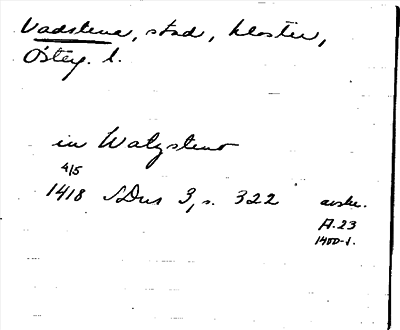 Vadstena, stad, kloster,
Östg. l.
in Watzsteno
4/5
1418 SDns 3, s. 322 avskr.
A.23
1400-t.